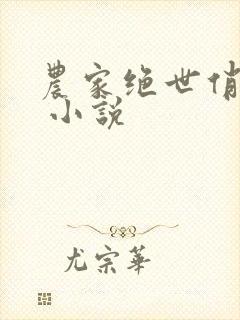 農家绝世俏
小說
尤宗華